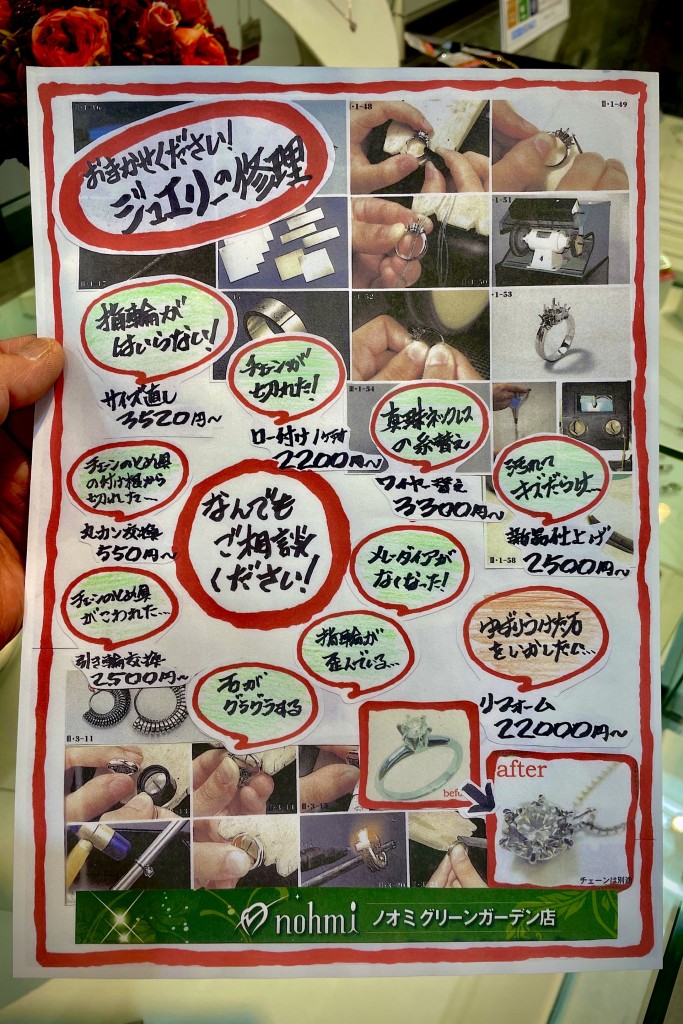 おまかせください!
ジュエリーの修理
II・1-48
II・1-49
・1-51
II・1-50
II・1-47
・1-52
・1-53
II・1-54
指輪が
はいらない!
サイズ直し
3520円~
チェーンが
切れた!
ロー付け1ヶ所
2200円~
真珠ネックレス
の糸替え
ワイヤー替え
3300円~
汚れて
キズだらけ…
新品仕上げ
2500円~
II・1-58
チェーンのとめ具
の付け根から
切れた…
丸カン交換
550円~
なんでも
ご相談
ください!
メレーダイアが
なくなった!
チェーンのとめ具
がこわれた…
引き輪交換
2500円~
指輪が
歪んでいる…
ゆずりうけた石
をいかしたい…
リフォーム
22000円~
石が
グラグラする
II・3-11
before
after
チェーンは別途
nohmi ノオミグリーンガーデン店